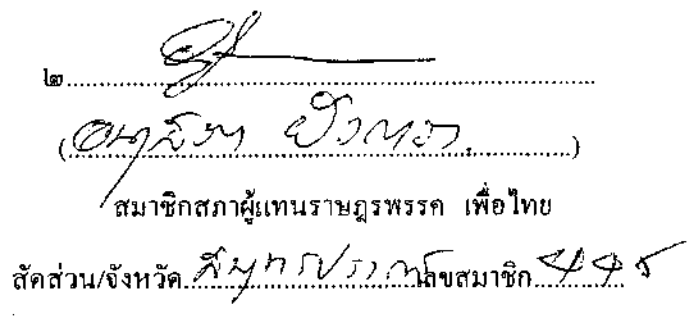 ๒
(อนุสรา ยังตรง)
สมาชิกสภาผู้แทนราษฎรพรรค เพื่อไทย
สัดส่วน/จังหวัด สมุทรปราการ เลขสมาชิก